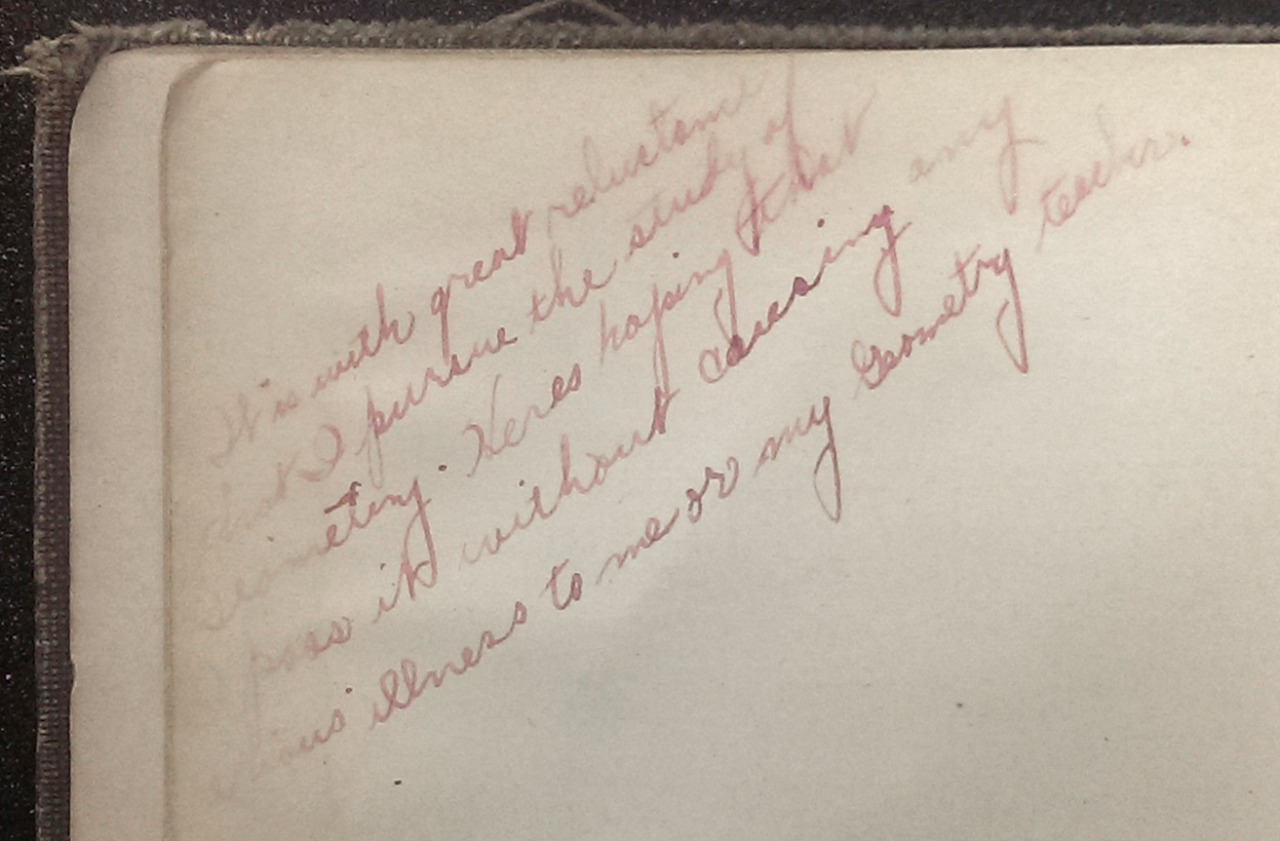 It is with great reluctance
that I pursue the study of
geometry. Heres hoping that
I pass it without causing any
serious illness to me or my Geometry teacher.